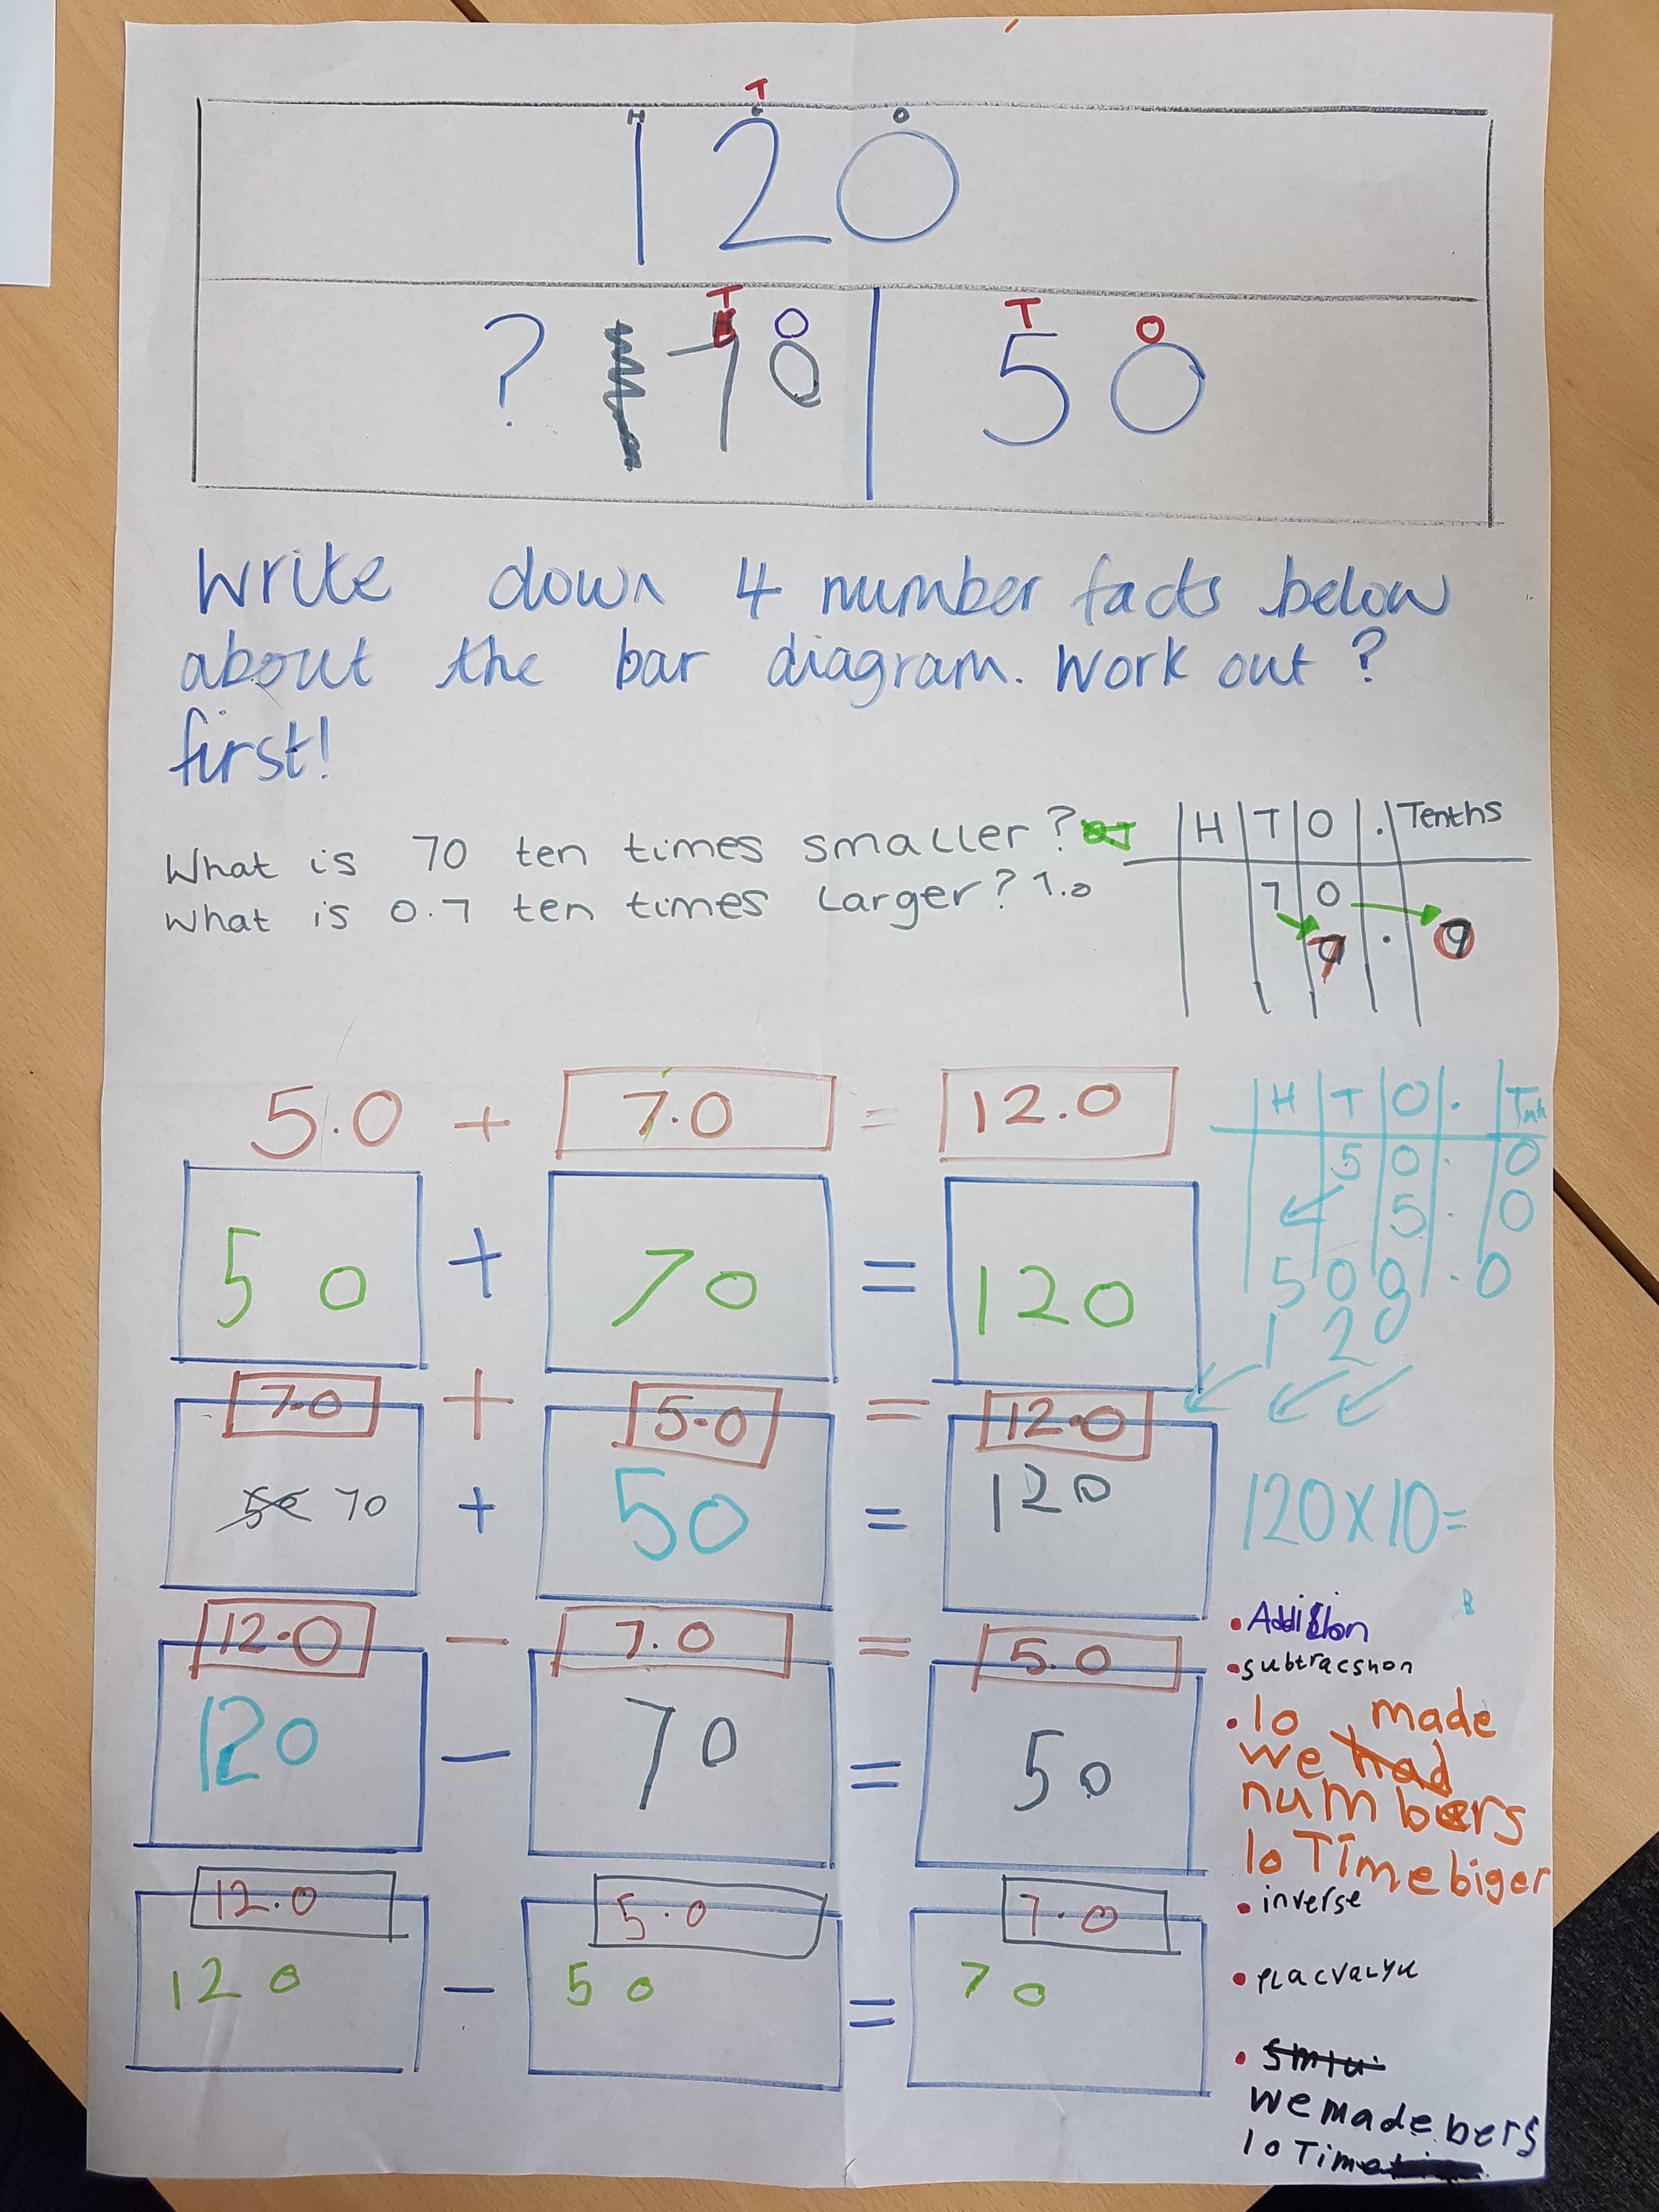 T
H O
120
T O T O
? 70 50
Write down 4 number facts below
about the bar diagram. Work out ?
first!
What is 70 ten times smaller?
What is 0.7 ten times larger? 7.0
H T O . Tenths
7 0
7 . 0
5.0 + 7.0 = 12.0
H T O .
5 0 . 0
5 . 0
5 0 0 . 0
1 2 0
50 + 70 = 120
7.0 + 5.0 = 12.0
70 + 50 = 120
120 x 10 =
12.0 - 7.0 = 5.0
120 - 70 = 50
12.0 - 5.0 = 7.0
120 - 50 = 70
• Addision
• subtracshon
• 10 made
we had
numbers
10 Time biger
• inverse
• placvalyu
•
we made bers
10 Time